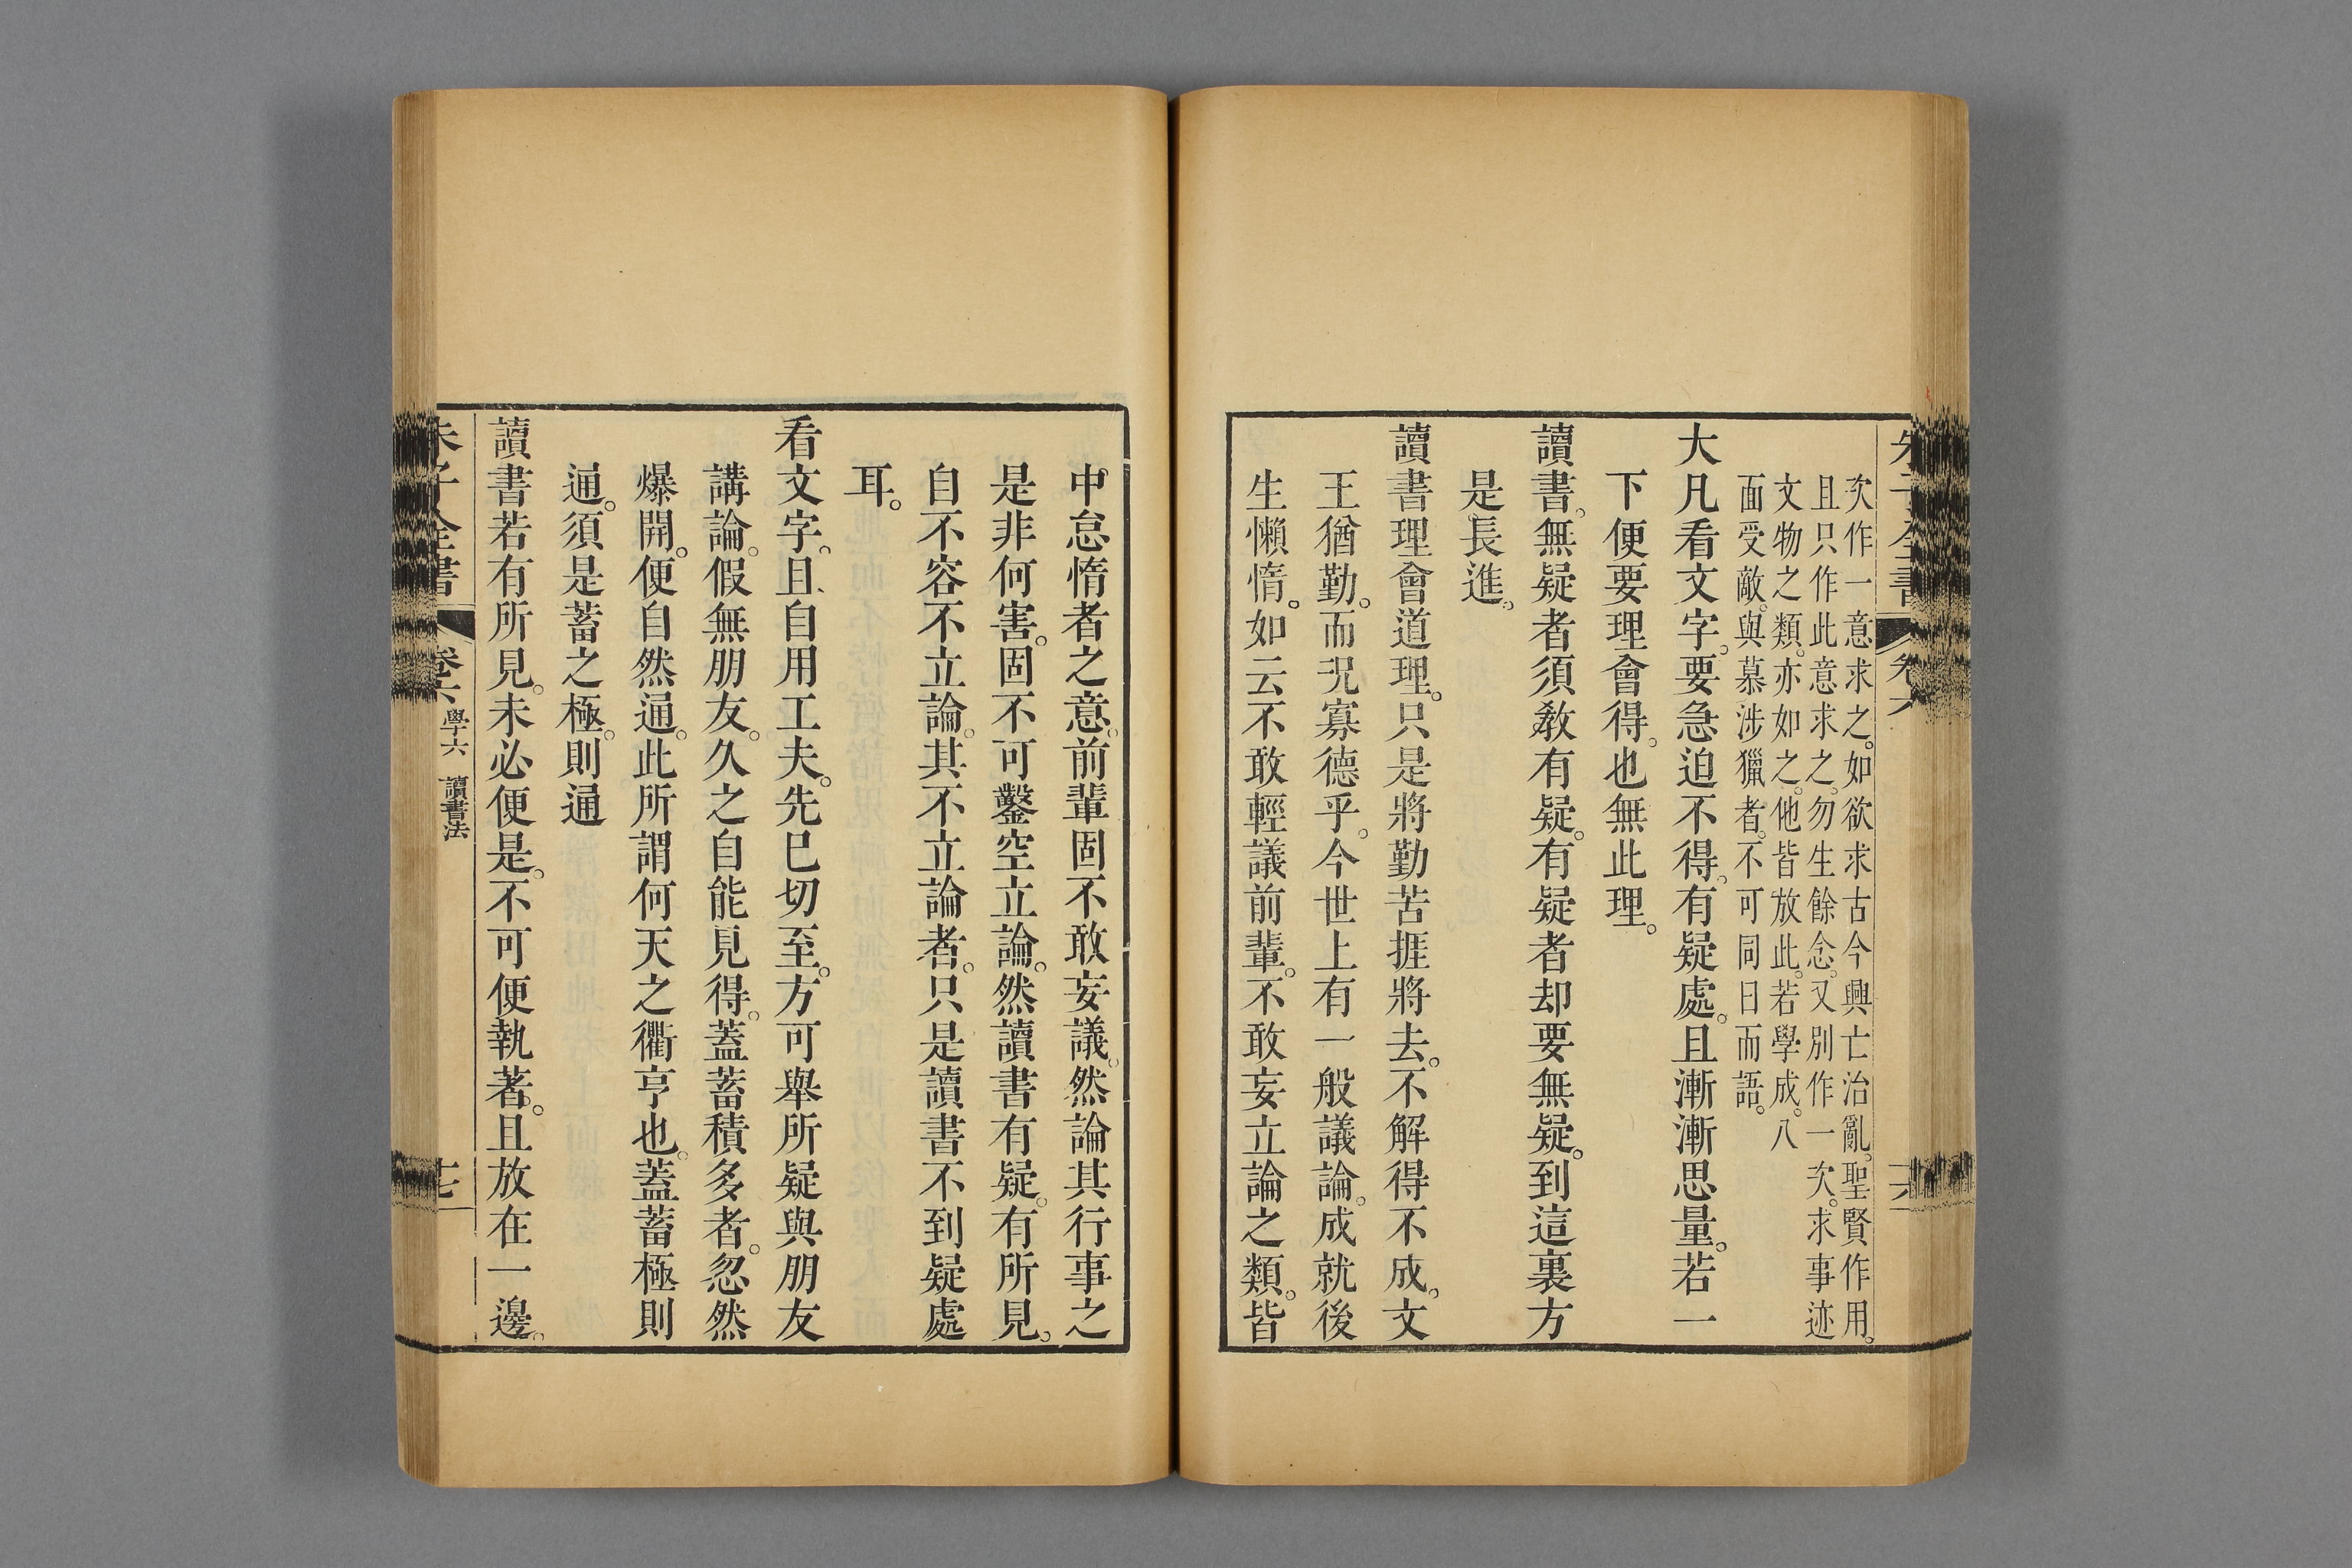 朱子全書 卷六
次作一意求之。如欲求古今興亡治亂。聖賢作用。
且只作此意求之。勿生餘念。又別作一次。求事迹
文物之類。亦如之。他皆放此。若學成。八
面受敵。與慕涉獵者。不可同日而語。
大凡看文字。要急迫不得。有疑處。且漸漸思量。若一
下便要理會得。也無此理。
讀書。無疑者須敎有疑。有疑者却要無疑。到這裏方
是長進。
讀書理會道理。只是將勤苦捱將去。不解得不成。文
王猶勤。而況寡德乎。今世上有一般議論。成就後
生懶惰。如云不敢輕議前輩。不敢妄立論之類。皆
中怠惰者之意。前輩固不敢妄議。然論其行事之
是非何害。固不可鑿空立論。然讀書有疑。有所見。
自不容不立論。其不立論者。只是讀書不到疑處
耳。
看文字。且自用工夫。先已切至。方可舉所疑與朋友
講論。假無朋友。久之自能見得。蓋蓄積多者。忽然
爆開。便自然通。此所謂何天之衢亨也。蓋蓄極則
通。須是蓄之極。則通
讀書若有所見。未必便是。不可便執著。且放在一邊。
朱子全書 卷六 學六 讀書法